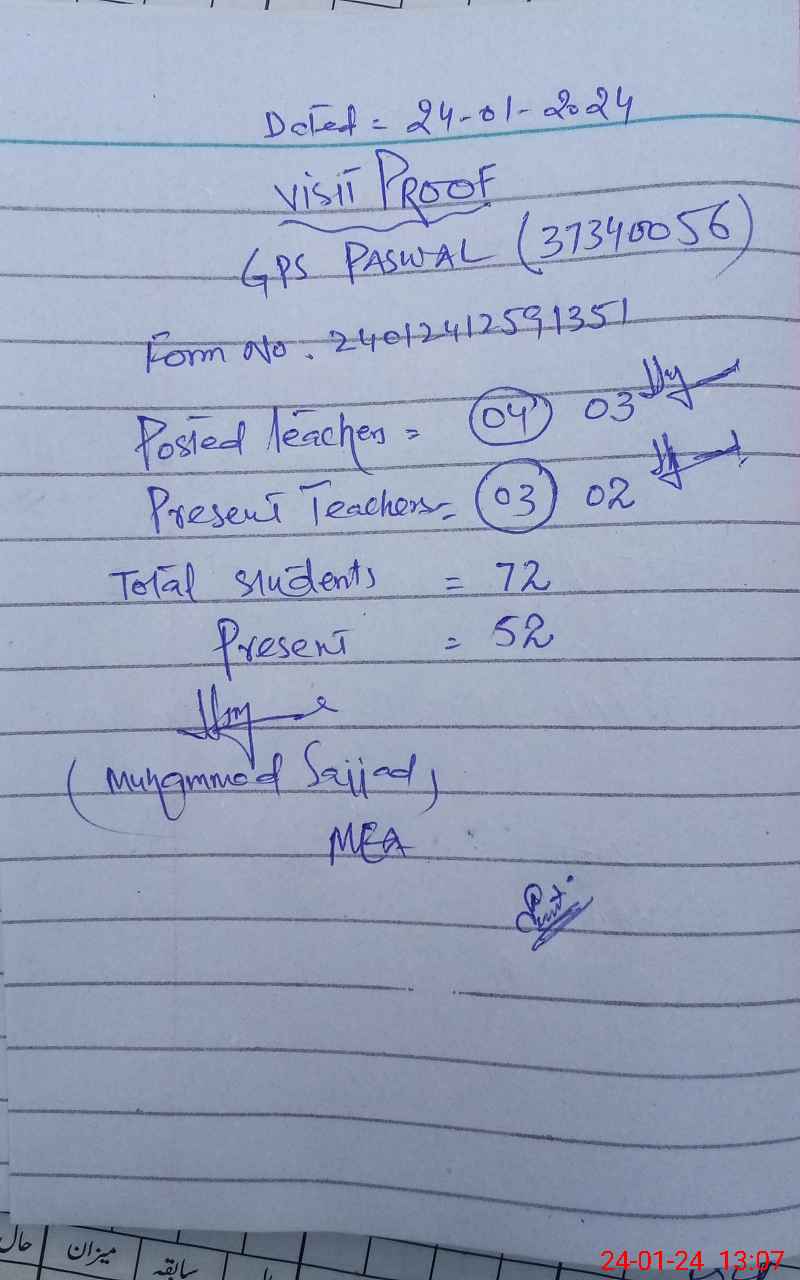 Dated = 24-01-2024
VISIT PROOF
GPS PASWAL (37340056)
Form No. 24012412591351
Posted Teachers = 04 03
Present Teachers = 03 02
Total students = 72
Present = 52
(Muhammad Sajjad)
MEA
حال میزان سابقہ
24-01-24 13:07